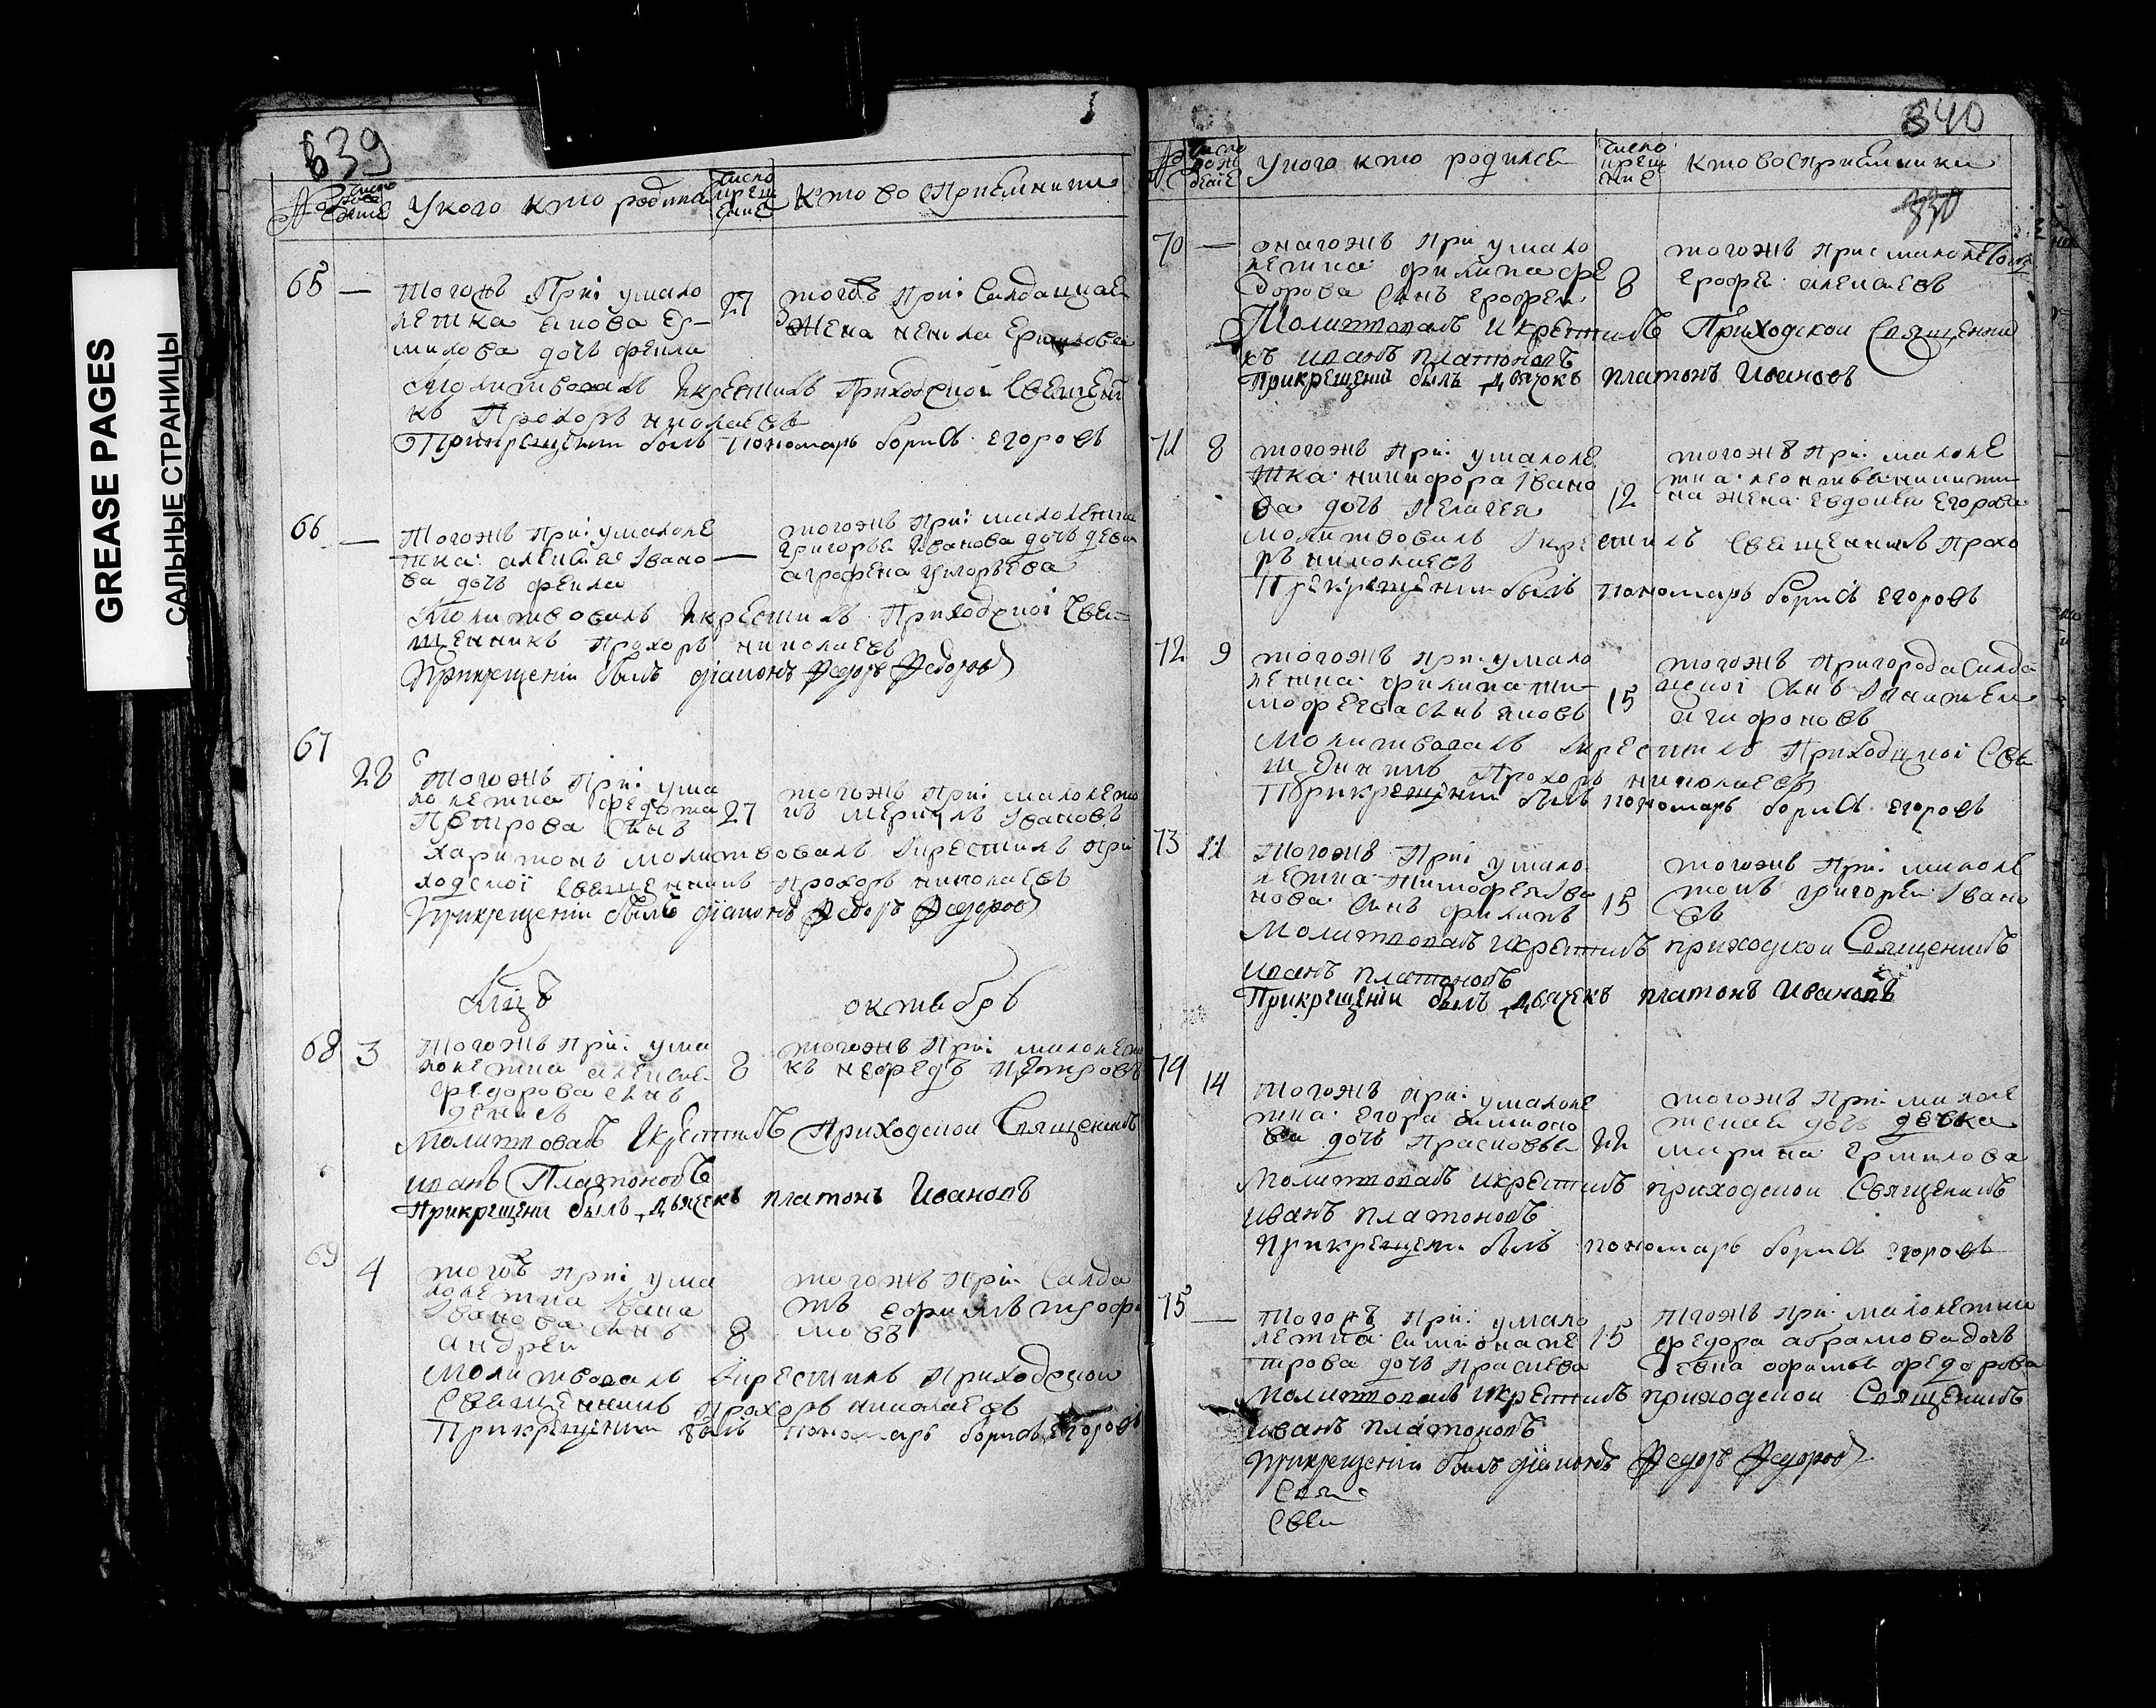 GREASE PAGES
САЛЬНЫЕ СТРАНИЦЫ
639
№
число рождение
У кого кто родился
число крещение
кто восприемники
65 —
тогожъ При: у мало
летка якова Ер-
милова дочь фекла
27
тогожъ При: Салдацкая
жена ненила Ермилова
Молитвовалъ Iкрестилъ Приходской Священи
къ Прохоръ николаевъ
Прикрещении былъ пономарь борисъ егоровъ
66 —
тогожъ При: у малоле
тка: алексея Iвано
ва дочь фекла
—
тогожъ При: малолетка
григорья Iванова дочь девка
агрофена григорьева
Молитвовалъ Iкрестилъ Приходской Свя-
щенникъ Прохоръ николаевъ
Прикрещении былъ дiаконъ Федоръ Федоровъ
67
28
тогожъ При: у ма
лолетка федота
Петрова сынъ
27
тогожъ При: малолето
къ меркулъ Iвановъ
харитонъ молитвовалъ Iкрестилъ при
ходской священникъ Прохоръ николаевъ
Прикрещении былъ дiаконъ Федоръ Федоровъ
Мцъ октябрь
68 3
тогожъ При: у ма
лолетка алексея
федорова сынъ
денисъ
8
тогожъ При: малолето
къ нефедъ Петровъ
Молитвовалъ Iкрестилъ Приходской Священикъ
иванъ Платоновъ
Прикрещени былъ дьячекъ платонъ Ивановъ
69 4
тогожъ При: у ма
лолетка Iвана
Iванова сынъ
андрей
8
тогожъ При: Салда
тъ ефимъ трофи
мовъ
Молитвовалъ Iкрестилъ Приходской
священникъ Прохоръ николаевъ
Прикрещении былъ пономарь борисъ егоровъ
840
№
число рождение
У кого кто родился
число крещение
кто восприемники
830
70 —
онагожъ При у мало
летка: филипа фе
дорова сынъ ерофей
8
тогожъ При: малолетокъ
ерофей: алексеевъ
Молитвовалъ Икрестилъ Приходской Священни
къ иванъ платоновъ
Прикрещенiи былъ дьячокъ платонъ Ивановъ
71 8
тогожъ При: у малоле
тка: никифора Iвано
ва дочь пелагея
12
тогожъ При: малоле
тка: леонтья: никити
на жена: евдокея егорова
молитвовалъ Iкрестилъ Священникъ Прохо
ръ николаевъ
Прикрещении былъ пономарь борисъ егоровъ
72 9
тогожъ При: у мало
летка: филипа ти-
мофеева сынъ яковъ
15
тогожъ Пригорода Салда
цкой сынъ Iпатей
агафоновъ
Молитвовалъ Iкрестилъ Приходцкой Свя
щенникъ Прохоръ николаевъ
Прикрещении былъ пономарь борисъ егоровъ
73 11
тогожъ При: у мало
летка: тимофея Iва
нова: сынъ филипъ
15
тогожъ При: малоле
токъ григорей: Iвано
въ
Молитвовалъ Икрестилъ приходской Священикъ
иванъ платоновъ
Прикрещенiи былъ дьячекъ платонъ Ивановъ
74 14
тогожъ При: у малоле
тка: егора симионо
ва дочь Прасковья
22
тогожъ При: малоле
тская дочь девка
марина ермилова
молитвовалъ икрестилъ приходской Священикъ
иванъ платоновъ
Прикрещени былъ пономарь борисъ егоровъ
75 —
тогожъ При: у мало
летка: симиона пе
трова дочь Праскева
15
тогожъ При: малолетки
федора абрамова дочь
девка офимья федорова
молитвовалъ икрестилъ приходской Священикъ
иванъ платоновъ
Прикрещенiи былъ дiаконъ Федоръ Федоровъ
Свя
Свя